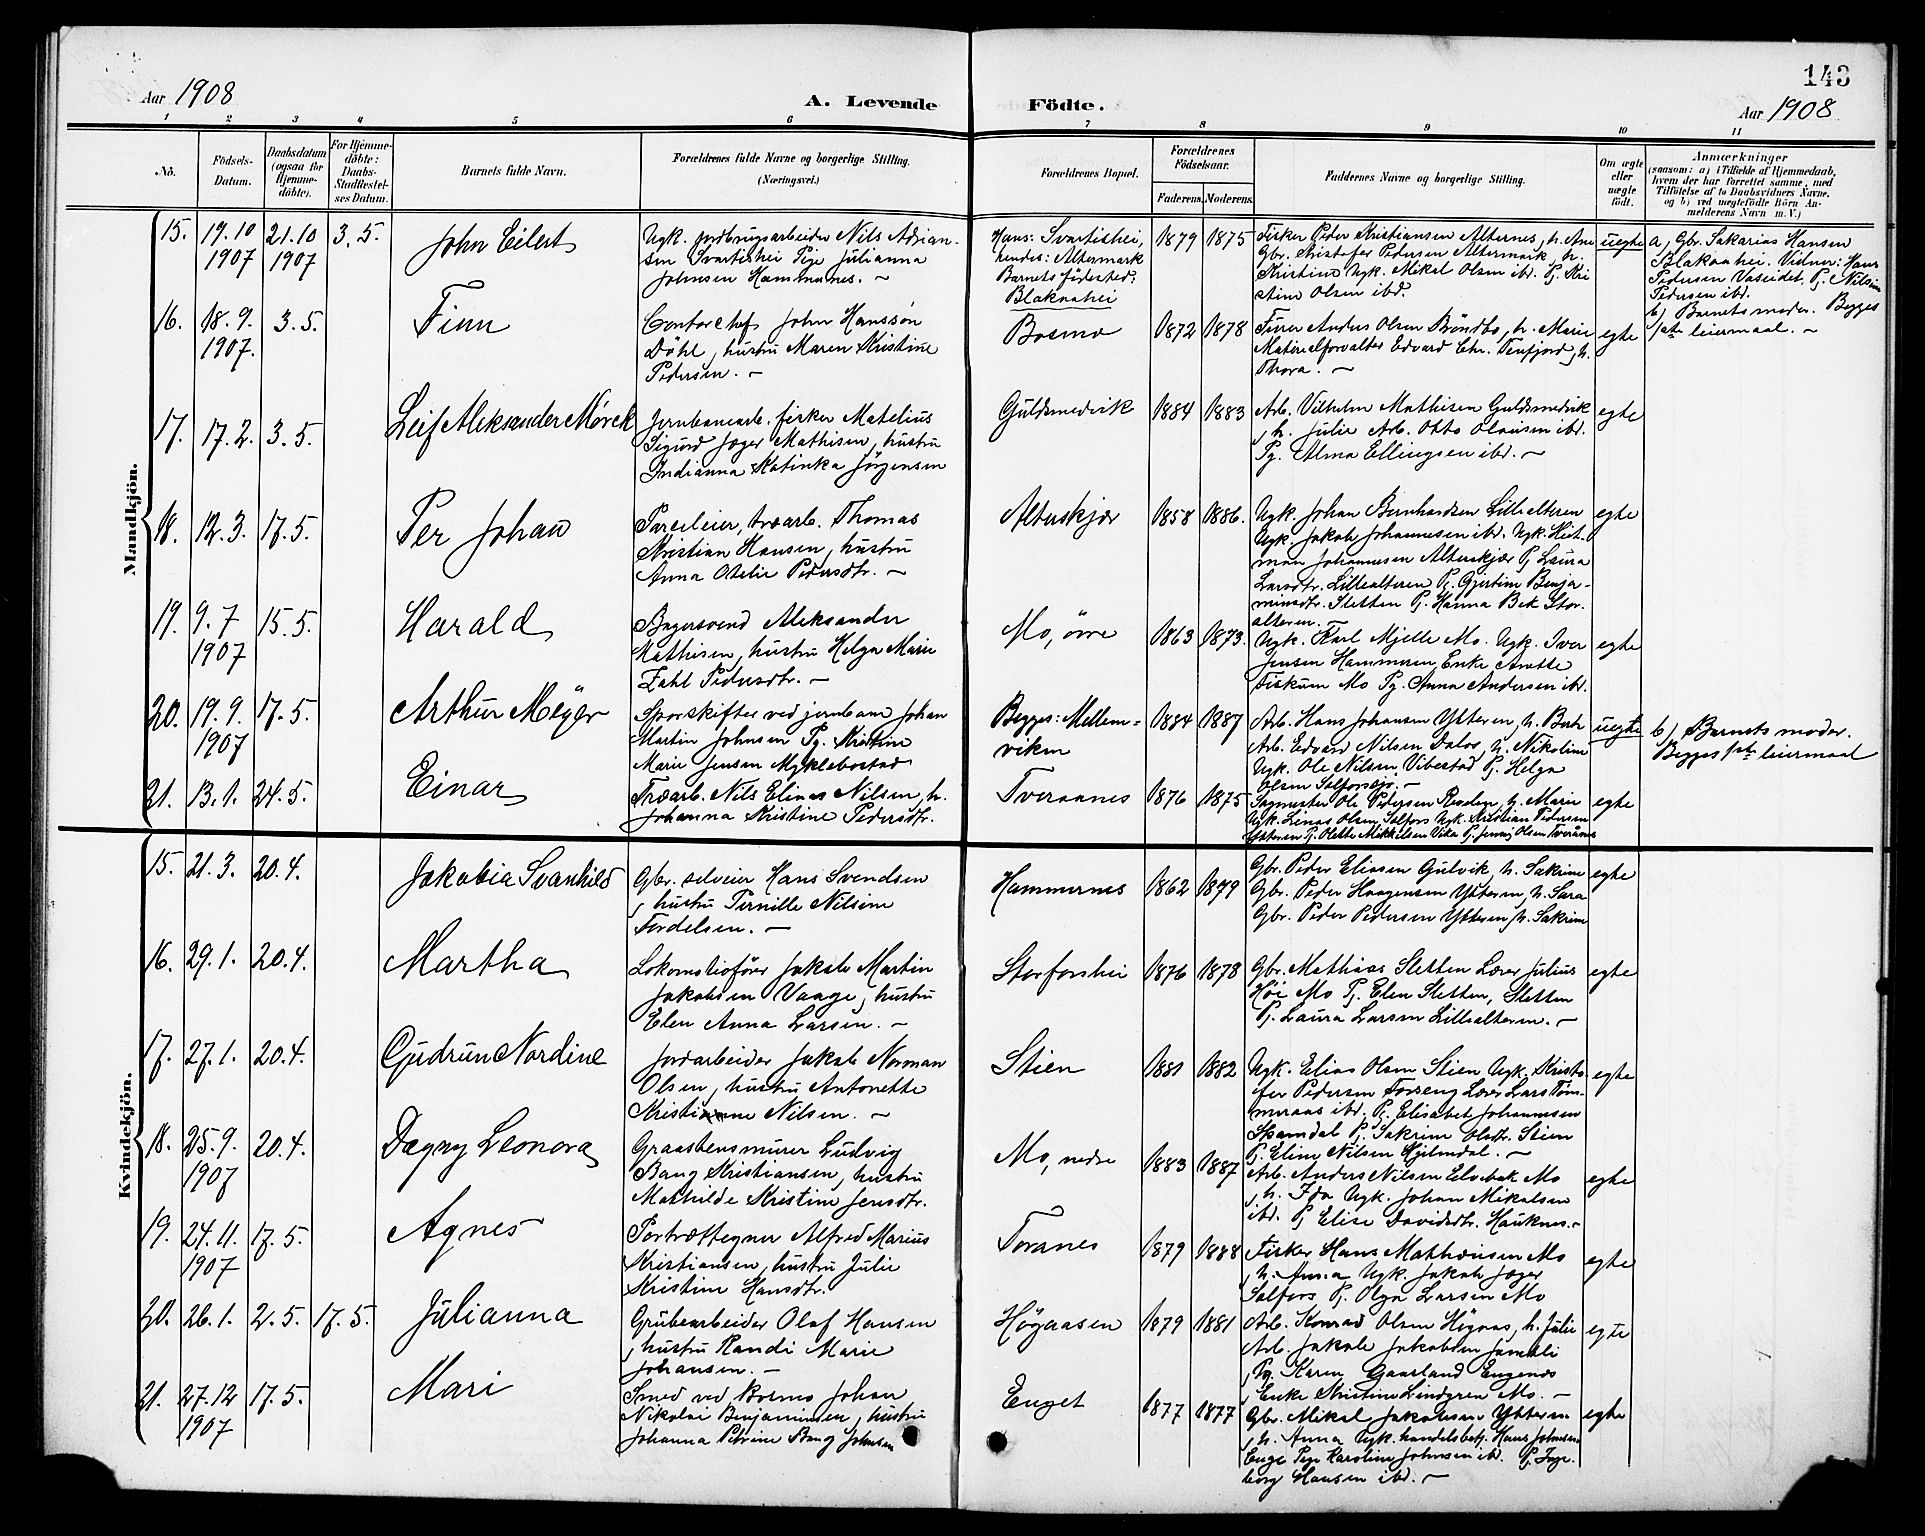 143
Aar 1908
A. Levende
Födte.
Aar 1908
1 2 3 4 5 6 7 8 9 10 11
No.
Födsels-
Datum.
Daabsdatum
(ogsaa for
Hjemme-
döbte).
For Hjemme-
döbte:
Daabs-
Stadfæstel-
ses Datum.
Barnets fulde Navn.
Forældrenes fulde Navne og borgerlige Stilling.
(Næringsvei.)
Forældrenes Bopæl.
Forældrenes
Födselsaar.
Faderens. Moderens.
Faddernes Navne og borgerlige Stilling.
Om ægte
eller
uægte
födt.
Anmærkninger
(saasom: a) i Tilfælde af Hjemmedaab,
hvem der har forrettet samme, med
Tilföielse af to Daabsvidners Navne,
og b) ved uægtefödte Börn An-
melderens Navn m. V.)
Mandkjön.
15. 19.10 1907 21.10 1907 3.5. John Eilert
Ugk. jordbrugsarbeider Nils Adrian-
sen Svartishei Pige Julianna
Johnsen Hammernes. —
Hans: Svartishei,
hendes: Altermark
Barnets födested:
Blakaahei
1879 1875
Fisker Peder Kristiansen Alternes, h. Ane
Gbr. Kristofer Pedersen Altermark, h.
Kristine Ugk. Mikal Olsen ibd. Pg. Kri
stine Olsen ibd.
uegte
a, Gbr. Sakarias Hansen
Blakaahei. Vidner: Hans
Pedersen Vaseidet, Pg. Nilsine
Pedersen ibd.
b) Barnets moder. Begges
1ste leiermaal. —
16. 18.9. 1907. 3.5. Finn
Contorchef John Hanssøn
Döhl, hustru Maren Kristine
Pedersen. —
Bosmo
1872 1878
Furer Anders Olsen Bröndbo, h. Marie
Materielforvalter Edvard Chr. Tenfjord, h.
Thora. —
egte
17. 17.2. 3.5. Leif Aleksander Mørck
Jernbanearb. fisker Matelius
Sigurd Jæger Mathisen, hustru
Indianna Katinka Jörgensen
Guldsmedvik
1884 1883
Arb. Vilhelm Mathisen Guldsmedvik
, h. Julie Arb. Otto Olausen ibd.
Pg. Alma Ellingsen ibd. —
egte
18. 12.3. 17.5. Per Johan
Parceleier, træarb. Thomas
Kristian Hansen, hustru
Anna Otelie Pedersdtr. —
Alterskjær
1858 1886.
Ugk. Johan Bernhardsen Lillealteren
Ugk. Jakob Johannesen ibd. Ugk. Hert-
man Johannesen Alterskjær Pg Laura
Larsdtr. Lillealteren Pg. Gjertine Benja-
minsdtr. Sletten Pg. Hanna Bek Stor-
alteren. —
egte
19. 9.7 1907 15.5. Harald
Bagersvend Aleksander
Mathisen, hustru Helga Marie
Zahl Pedersdtr. —
Mo, övre
1863 1873.
Ugk. Karl Mjelle Mo. Ugk. Iver
Jensen Hammeren, Enke Anette
Fiskum Mo Pg. Anna Andersen ibd.
egte
20. 19.9. 1907 17.5. Arthur Meyer
Sporskifter ved jernbane Johan
Martin Johnsen Pg. Kristine
Marie Jensen Myklebostad
Begges: Mellem-
viken
1884 1887
Arb. Hans Johansen Ytteren, h. Berte
Arb. Edvard Nilsen Dalos, h. Nikoline
Ugk. Ole Nilsen, Vibestad Pg. Helga
Olsen Selforssjö. —
uegte
b) Barnets moder.
Begges 1ste leiermaal
21. 13.1. 24.5. Einar
Træarb. Nils Elinas Nilsen, h.
Johanna Kristine Pedersdtr.
Tveraanes
1876 1875
Sagmester Ole Pedersen h. Marie
Ugk. Linas Olsen, Selfors Ugk. Kristian Pedersen
Ytteren Pg. Olette Mikkelsen Vika Pg. Jenny Olsen Tveraanes
egte
Kvindekjön.
15. 21.3. 20.4. Jakobia Svanhild
Gbr. selveier Hans Svendsen
, hustru Pernille Nilsine
Fordelsen. —
Hammernes
1862 1879
Gbr. Peder Eliasen Gulvik, h. Sakrine
Gbr. Peder Haagensen Ytteren, h. Sara
Gbr. Peder Pedersen Ytteren, h. Sakrine
egte
16. 29.1. 20.4. Martha
Lokomotivfører Jakob Martin
Jakobsen Vaage, hustru
Elen Anna Larsen. —
Storforshei
1876 1878
Gbr. Mathias Sletten Lærer Julius
Høi Mo Pg. Elen Sletten, Sletten
Pg. Laura Larsen Lillealteren. —
egte
17. 27.1. 20.4. Gudrun Nordine
Jordarbeider Jakob Norman
Olsen, hustru Antonette
Kristianne Nilsen. —
Stien
1881 1882
Ugk. Elias Olsen Stien Ugk. Kristo
fer Pedersen Forseng Lærer Lars Töm-
meraas ibd. Pg. Elisabet Johannesen
Skamdal Pg. Sakrine Olsdtr. Stien
Pg. Eline Nilsen Hjelmdal. —
egte
18. 25.9. 1907 20.4. Dagny Leonora
Graastensmurer Ludvig
Bang Kristiansen, hustru
Mathilde Kristine Jensdtr.
Mo, nedre
1883 1887
Arb. Anders Nilsen Elvebak Mo
, h. Ida Ugk. Johan Mikalsen
ibd. Pg Elise Davidsdtr. Hauknes. —
egte
19. 24.11. 1907 17.5. Agnes
Portrættegner Alfred Marius
Kristiansen, hustru Julie
Kristine Hansdtr.
Toranes
1879 1888
Fisker Hans Mathæusen Mo
, h. Anna Ugk. Jakob Jæger
Selfors Pg. Olga Larsen Mo
egte
20. 26.1. 2.5. 17.5. Julianna
Grubearbeider Olaf Hansen
, hustru Randi Marie
Johansen. —
Høgaasen
1879 1881
Arb. Konrad Olsen Høgaas, h. Julie
Arb. Jakob Jakobsen Jamtli
, Pg Karen Gaasland Engenes
, Enke Kristine Lindgren Mo. —
egte
21. 27.12 1907 17.5. Mari
Smed ved Bosmo Johan
Nikolai Benjaminsen, hustru
Johanna Petrine Bang Johnsen
Enget
1877 1877
Gbr. Mikal Jakobsen Ytteren
, h. Anna Ugk. handelsbetj. Hans Johnsen
Enge Pige Karoline Johnsen ibd. Pg. Inge-
borg Hansen ibd. —
egte